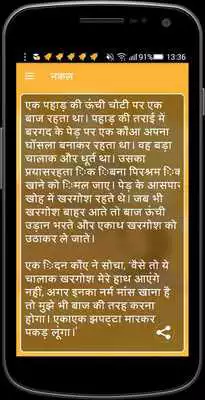 13:36
नकल
एक पहाड़ की ऊंची चोटी पर एक
बाज रहता था। पहाड़ की तराई में
बरगद के पेड़ पर एक कौआ अपना
घोंसला बनाकर रहता था। वह बड़ा
चालाक और धूर्त था। उसका
प्रयासरहता िक िबना पिरश्रम िकए
खाने को िमल जाए। पेड़ के आसपास
खोह में खरगोश रहते थे। जब भी
खरगोश बाहर आते तो बाज ऊंची
उड़ान भरते और एकाध खरगोश को
उठाकर ले जाते।
एक िदन कौए ने सोचा, 'वैसे तो ये
चालाक खरगोश मेरे हाथ आएंगे
नहीं, अगर इनका नर्म मांस खाना है
तो मुझे भी बाज की तरह करना
होगा। एकाएक झपट्टा मारकर
पकड़ लूंगा।'